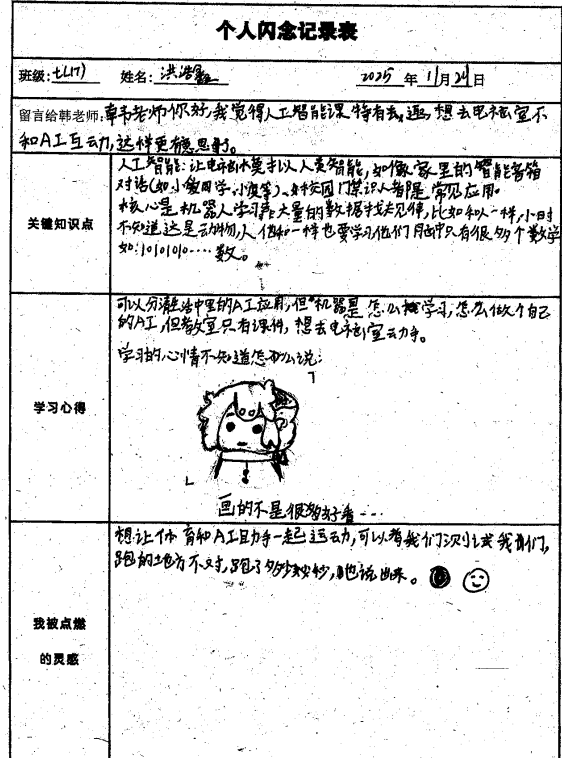 个人闪念记录表
班级:七(17) 姓名:洪浩 2025年11月24日
留言给韩老师:韩老师你好,我觉得人工智能课特有趣,想去电脑室
和AI互动,这样更有意思。
关键知识点
人工智能:让电脑模才以人类智能,如像家里的智能音箱
对话(如小爱同学、小度等)、校园门禁识人都是常见应用。
核心是机器人学习靠大量的数据找规律,比如和人一样,小时
不知道这是动物,人他和一样也要学习他们脑中只有很多个数学
如:10101010……数。
学习心得
可以分清生活中里的AI应用,但机器是怎么学习,怎么做个自己
的AI,但教室只有课件,想去电脑室动手。
学习的心情不知道怎么说:
画的不是很好看…
我被点燃
的灵感
想让体育和AI互动一起运动,可以看我们测试我们,
跑的地方不对,跑了多少秒,也说出来。